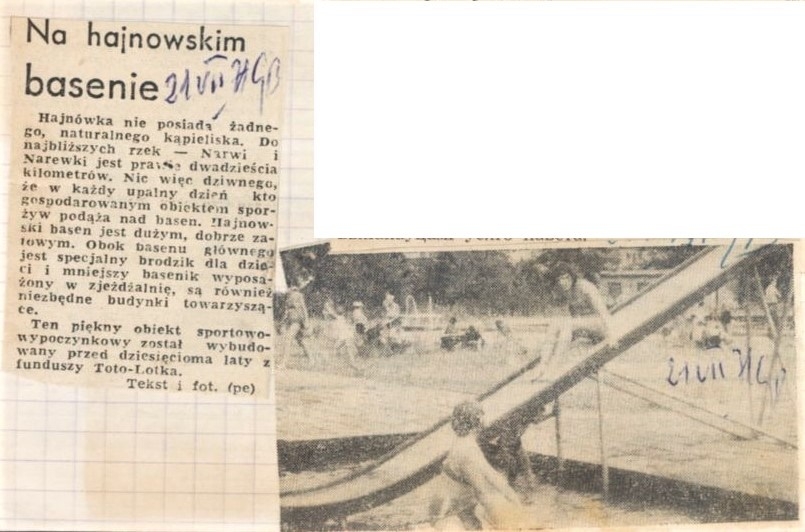 Na hajnowskim
basenie 21 VII 71 GB
Hajnówka nie posiada żadne-
go, naturalnego kąpieliska. Do
najbliższych rzek — Narwi i
Narewki jest prawie dwadzieścia
kilometrów. Nic więc dziwnego,
że w każdy upalny dzień kto
gospodarowanym obiektem spor-
żyw podąża nad basen. Hajnow-
ski basen jest dużym, dobrze za-
towym. Obok basenu głównego
jest specjalny brodzik dla dzie-
ci i mniejszy basenik wyposa-
żony w zjeżdżalnię, są również
niezbędne budynki towarzyszą-
ce.
Ten piękny obiekt sportowo-
wypoczynkowy został wybudo-
wany przed dziesięcioma laty z
funduszy Toto-Lotka.
Tekst i fot. (pe)
21 VII 71 GB